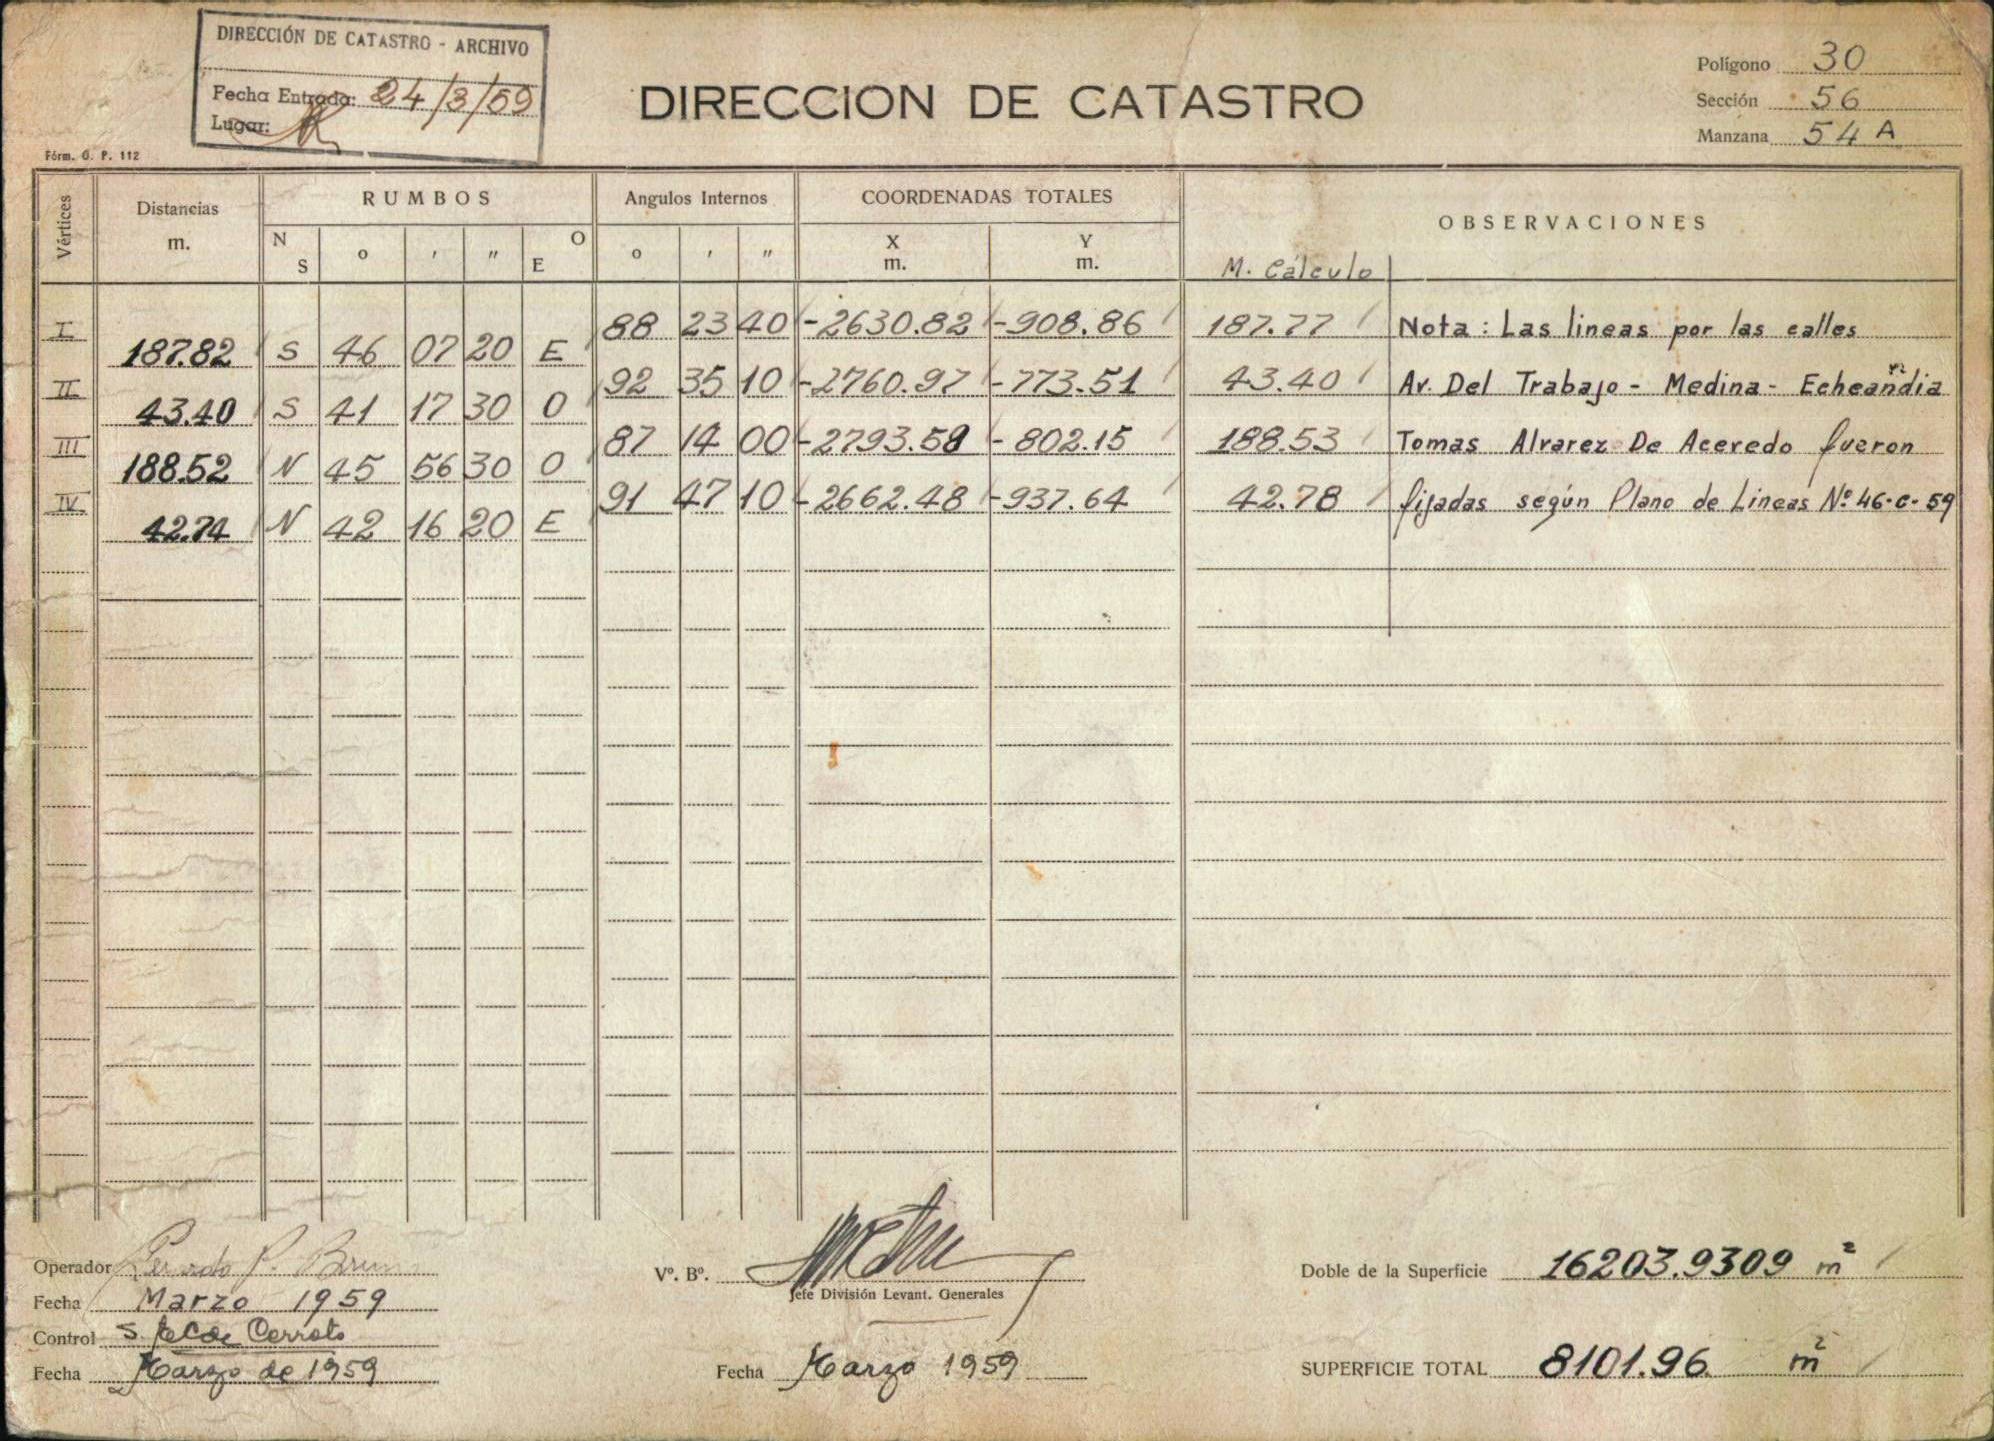 DIRECCIÓN DE CATASTRO - ARCHIVO
Fecha Entrada: 24/3/59
Lugar:
Fórm. O. P. 112
DIRECCION DE CATASTRO
Polígono 30
Sección 56
Manzana 54 A
Vértices Distancias m. RUMBOS Angulos Internos COORDENADAS TOTALES OBSERVACIONES
N S o ' " O E o ' " X m. Y m. M. Cálculo
I 88 23 40 -2630.82 -908.86 187.77 Nota: Las lineas por las calles
187.82 S 46 07 20 E
II 92 35 10 -2760.97 -773.51 43.40 Av. Del Trabajo - Medina - Echeandia
43.40 S 41 17 30 O
III 87 14 00 -2793.59 -802.15 188.53 Tomas Alvarez De Acevedo fueron
188.52 N 45 56 30 O
IV 91 47 10 -2662.48 -937.64 42.78 fijadas según Plano de Lineas Nº 46-C-59
42.74 N 42 16 20 E
Operador
Fecha Marzo 1959
Control S. Cerrato
Fecha Marzo de 1959
Vº. Bº.
Jefe División Levant. Generales
Fecha Marzo 1959
Doble de la Superficie 16203.9309 m²
SUPERFICIE TOTAL 8101.96 m²